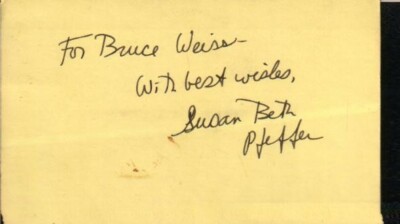 For Bruce Weiss-
With best wishes,
Susan Beth
Pfeffer